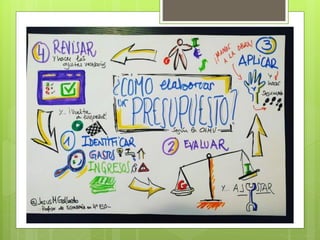 4 REVISAR
Y hacer los
ajustes necesarios
¿CÓMO elaborar
UN PRESUPUESTO?
Según la CNMV
¡MANOS
A LA OBRA!
3
APLICAR
Y hacer
Y... ¡Vuelta
a empezar!
1 IDENTIFICAR
GASTOS
INGRESOS
2 EVALUAR
G
I
Y... AJUSTAR
@JesusMGallardo
Profesor de ECONOMÍA en 4º ESO